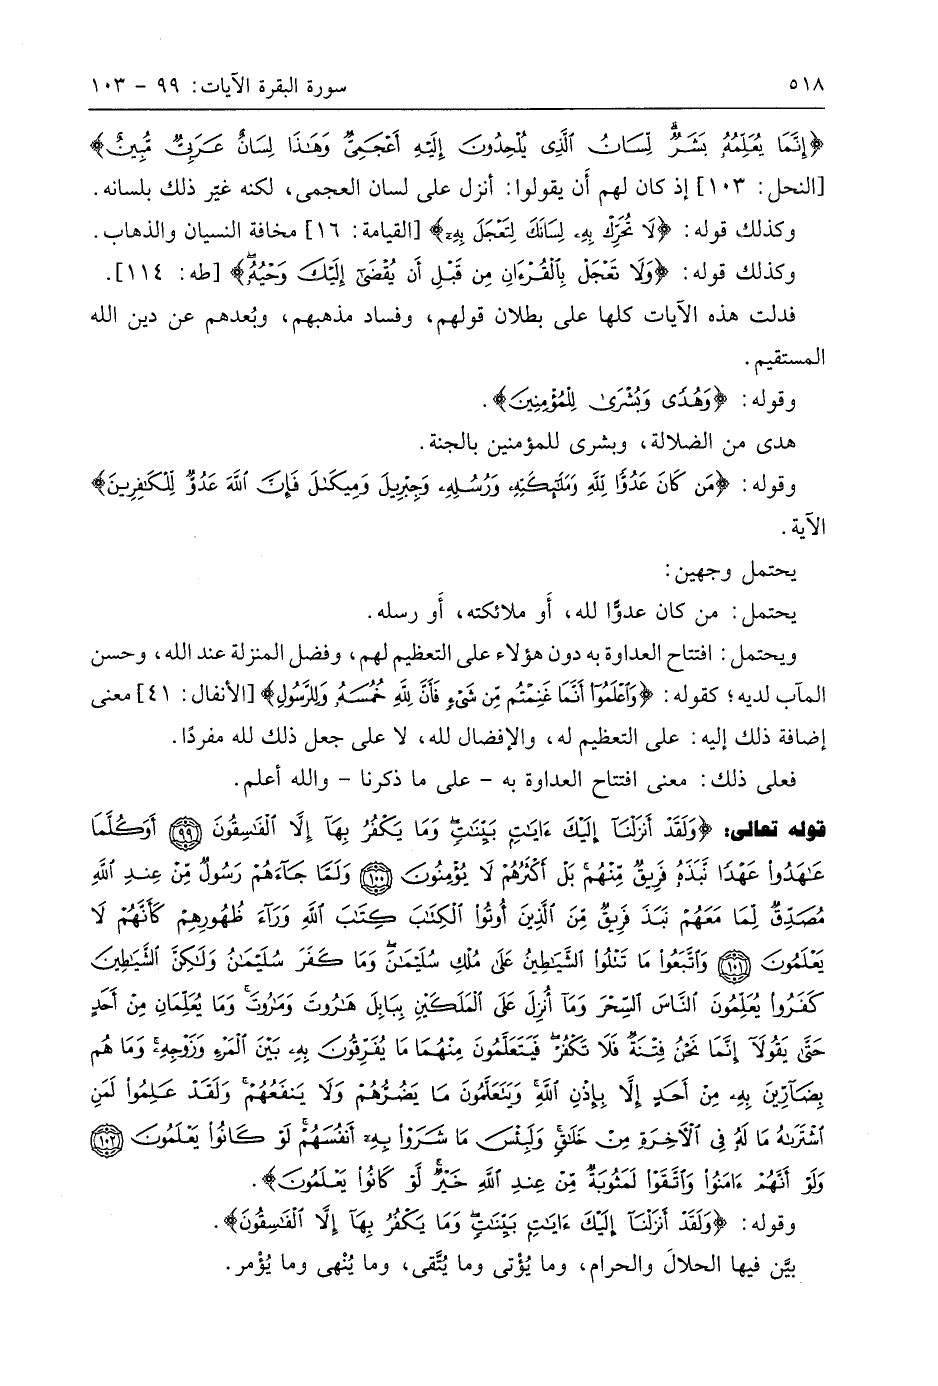 ٥١٨ سورة البقرة الآيات: ٩٩ - ١٠٣
﴿إِنَّمَا يُعَلِّمُهُۥ بَشَرٌۗ لِّسَانُ ٱلَّذِى يُلْحِدُونَ إِلَيْهِ أَعْجَمِىٌّ وَهَٰذَا لِسَانٌ عَرَبِىٌّ مُّبِينٌ﴾
[النحل: ١٠٣] إذ كان لهم أن يقولوا: أنزل على لسان العجمى، لكنه غيّر ذلك بلسانه.
وكذلك قوله: ﴿لَا تُحَرِّكْ بِهِۦ لِسَانَكَ لِتَعْجَلَ بِهِۦٓ﴾ [القيامة: ١٦] مخافة النسيان والذهاب.
وكذلك قوله: ﴿وَلَا تَعْجَلْ بِٱلْقُرْءَانِ مِن قَبْلِ أَن يُقْضَىٰٓ إِلَيْكَ وَحْيُهُۥۖ﴾ [طه: ١١٤].
فدلت هذه الآيات كلها على بطلان قولهم، وفساد مذهبهم، وبُعدهم عن دين الله
المستقيم.
وقوله: ﴿وَهُدًى وَبُشْرَىٰ لِلْمُؤْمِنِينَ﴾.
هدى من الضلالة، وبشرى للمؤمنين بالجنة.
وقوله: ﴿مَن كَانَ عَدُوًّا لِّلَّهِ وَمَلَٰٓئِكَتِهِۦ وَرُسُلِهِۦ وَجِبْرِيلَ وَمِيكَىٰلَ فَإِنَّ ٱللَّهَ عَدُوٌّ لِّلْكَٰفِرِينَ﴾
الآية.
يحتمل وجهين:
يحتمل: من كان عدوًّا لله، أَو ملائكته، أَو رسله.
ويحتمل: افتتاح العداوة به دون هؤلاء على التعظيم لهم، وفضل المنزلة عند الله، وحسن
المآب لديه؛ كقوله: ﴿وَٱعْلَمُوٓا۟ أَنَّمَا غَنِمْتُم مِّن شَىْءٍ فَأَنَّ لِلَّهِ خُمُسَهُۥ وَلِلرَّسُولِ﴾ [الأنفال: ٤١] معنى
إضافة ذلك إليه: على التعظيم له، والإفضال لله، لا على جعل ذلك لله مفردًا.
فعلى ذلك: معنى افتتاح العداوة به - على ما ذكرنا - والله أعلم.
قوله تعالى: ﴿وَلَقَدْ أَنزَلْنَآ إِلَيْكَ ءَايَٰتٍۭ بَيِّنَٰتٍۖ وَمَا يَكْفُرُ بِهَآ إِلَّا ٱلْفَٰسِقُونَ ٩٩ أَوَكُلَّمَا
عَٰهَدُوا۟ عَهْدًا نَّبَذَهُۥ فَرِيقٌ مِّنْهُمۚ بَلْ أَكْثَرُهُمْ لَا يُؤْمِنُونَ ١٠٠ وَلَمَّا جَآءَهُمْ رَسُولٌ مِّنْ عِندِ ٱللَّهِ
مُصَدِّقٌ لِّمَا مَعَهُمْ نَبَذَ فَرِيقٌ مِّنَ ٱلَّذِينَ أُوتُوا۟ ٱلْكِتَٰبَ كِتَٰبَ ٱللَّهِ وَرَآءَ ظُهُورِهِمْ كَأَنَّهُمْ لَا
يَعْلَمُونَ ١٠١ وَٱتَّبَعُوا۟ مَا تَتْلُوا۟ ٱلشَّيَٰطِينُ عَلَىٰ مُلْكِ سُلَيْمَٰنَۖ وَمَا كَفَرَ سُلَيْمَٰنُ وَلَٰكِنَّ ٱلشَّيَٰطِينَ
كَفَرُوا۟ يُعَلِّمُونَ ٱلنَّاسَ ٱلسِّحْرَ وَمَآ أُنزِلَ عَلَى ٱلْمَلَكَيْنِ بِبَابِلَ هَٰرُوتَ وَمَٰرُوتَۚ وَمَا يُعَلِّمَانِ مِنْ أَحَدٍ
حَتَّىٰ يَقُولَآ إِنَّمَا نَحْنُ فِتْنَةٌ فَلَا تَكْفُرْۖ فَيَتَعَلَّمُونَ مِنْهُمَا مَا يُفَرِّقُونَ بِهِۦ بَيْنَ ٱلْمَرْءِ وَزَوْجِهِۦۚ وَمَا هُم
بِضَآرِّينَ بِهِۦ مِنْ أَحَدٍ إِلَّا بِإِذْنِ ٱللَّهِۚ وَيَتَعَلَّمُونَ مَا يَضُرُّهُمْ وَلَا يَنفَعُهُمْۚ وَلَقَدْ عَلِمُوا۟ لَمَنِ
ٱشْتَرَىٰهُ مَا لَهُۥ فِى ٱلْءَاخِرَةِ مِنْ خَلَٰقٍۚ وَلَبِئْسَ مَا شَرَوْا۟ بِهِۦٓ أَنفُسَهُمْۚ لَوْ كَانُوا۟ يَعْلَمُونَ ١٠٢
وَلَوْ أَنَّهُمْ ءَامَنُوا۟ وَٱتَّقَوْا۟ لَمَثُوبَةٌ مِّنْ عِندِ ٱللَّهِ خَيْرٌۖ لَّوْ كَانُوا۟ يَعْلَمُونَ﴾.
وقوله: ﴿وَلَقَدْ أَنزَلْنَآ إِلَيْكَ ءَايَٰتٍۭ بَيِّنَٰتٍۖ وَمَا يَكْفُرُ بِهَآ إِلَّا ٱلْفَٰسِقُونَ﴾.
بيَّن فيها الحلالَ والحرام، وما يُؤتى وما يُتَّقى، وما يُنْهى وما يُؤْمر.